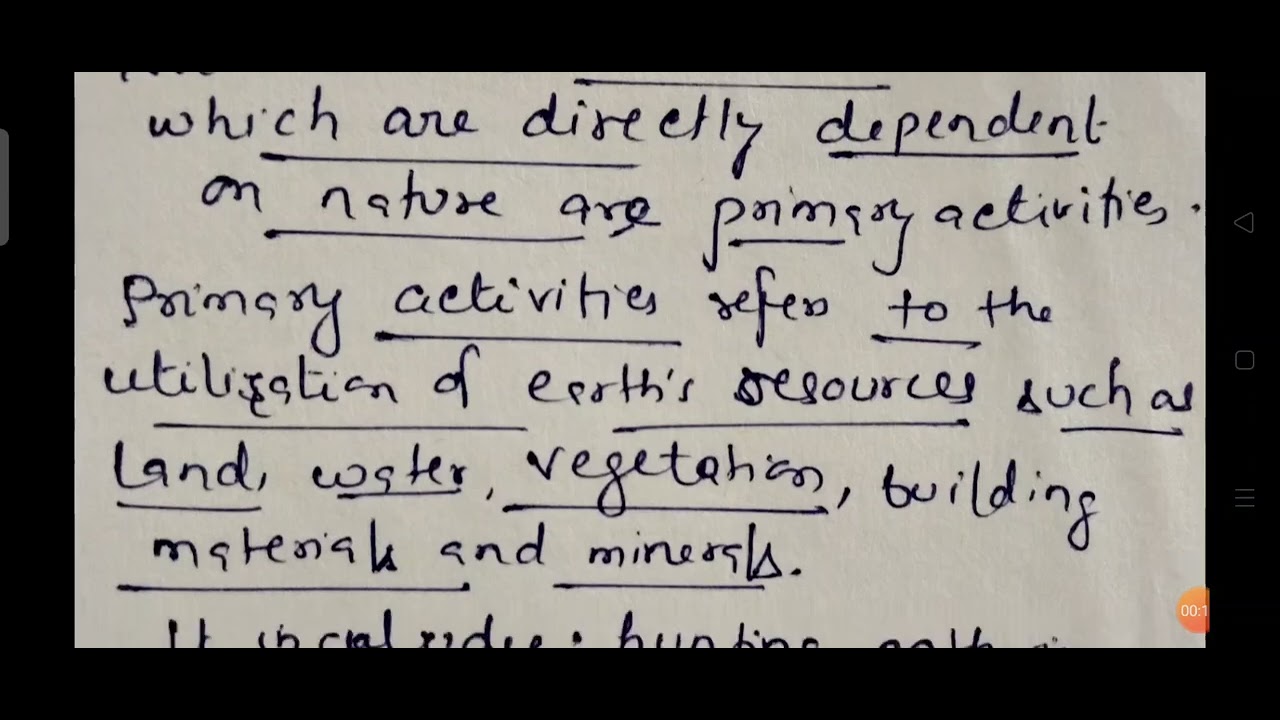 which are directly dependent
on nature are primary activities.
Primary activities refers to the
utilization of earth's resources such as
land, water, vegetation, building
materials and minerals.
It includes: hunting
00:1